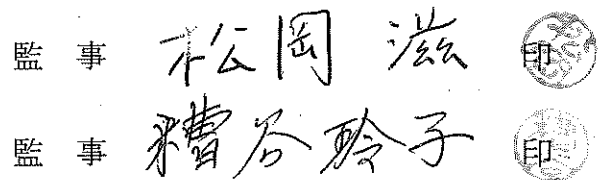 監 事 松岡 滋 印
監 事 糟谷玲子 印